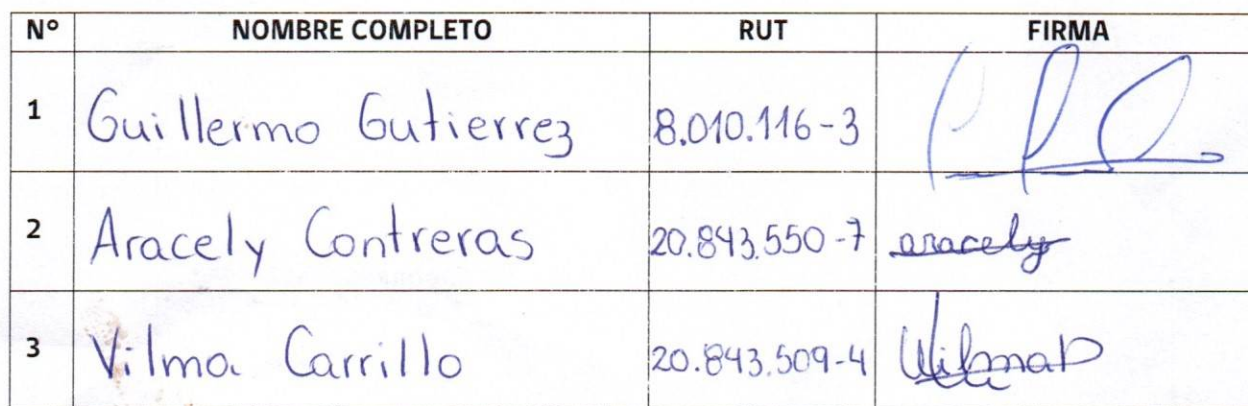 N° NOMBRE COMPLETO RUT FIRMA
1 Guillermo Gutierrez 8.010.116-3
2 Aracely Contreras 20.843.550-7 aracely
3 Vilma Carrillo 20.843.509-4